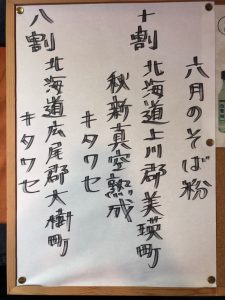 六月のそば粉
十割 北海道上川郡美瑛町
秋新真空熟成
キタワセ
八割 北海道広尾郡大樹町
キタワセ